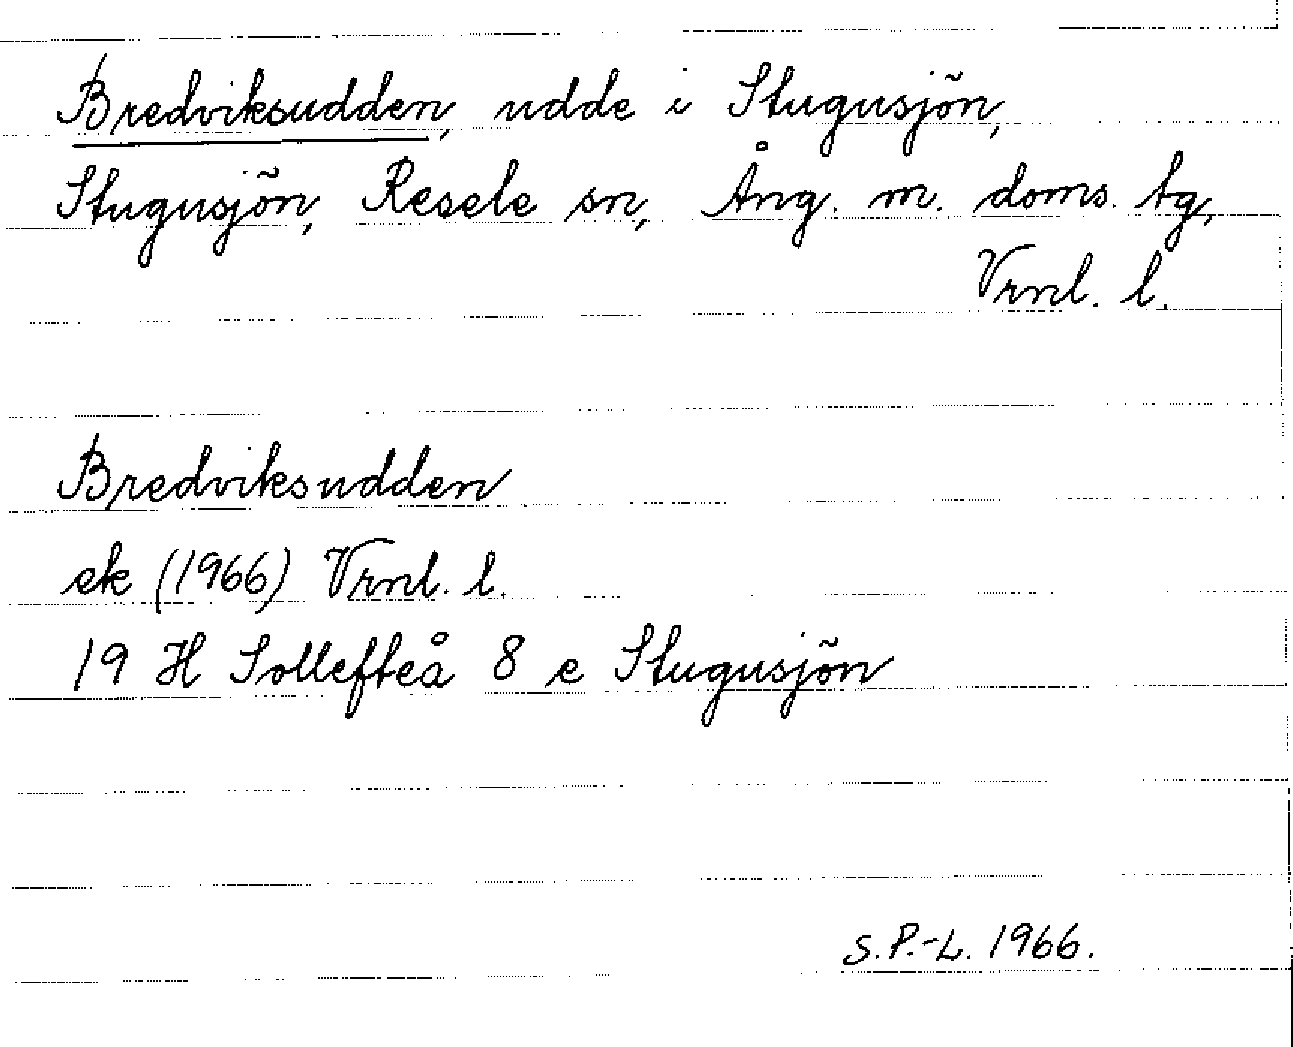 Bredviksudden, udde i Stugusjön,
Stugusjön, Resele sn, Ång. m. doms. tg,
Vrnl. l.
Bredviksudden
ek (1966) Vrnl. l.
19 H Sollefteå 8 e Stugusjön
S.P.-L. 1966.